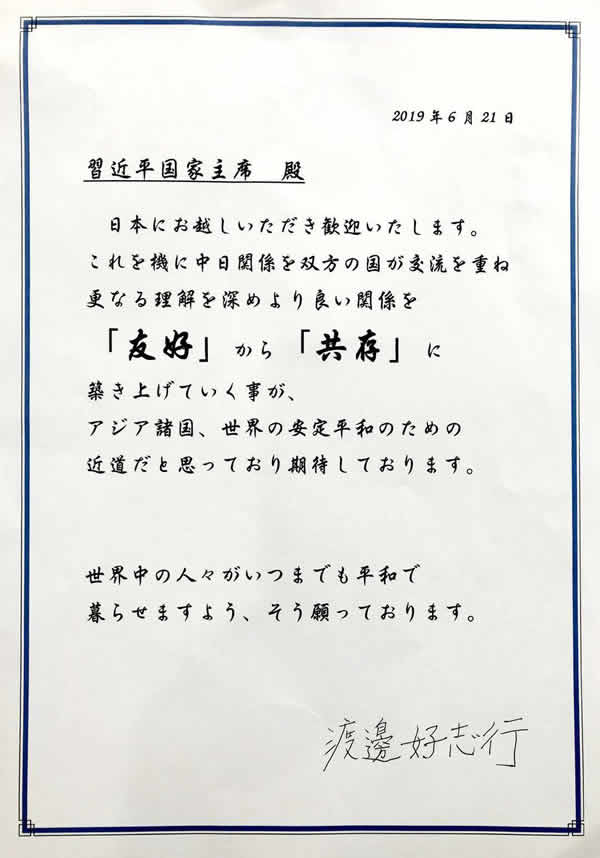 2019年6月21日
習近平国家主席　殿
日本にお越しいただき歓迎いたします。
これを機に中日関係を双方の国が交流を重ね
更なる理解を深めより良い関係を
「友好」から「共存」に
築き上げていく事が、
アジア諸国、世界の安定平和のための
近道だと思っており期待しております。
世界中の人々がいつまでも平和で
暮らせますよう、そう願っております。
渡邊好志行